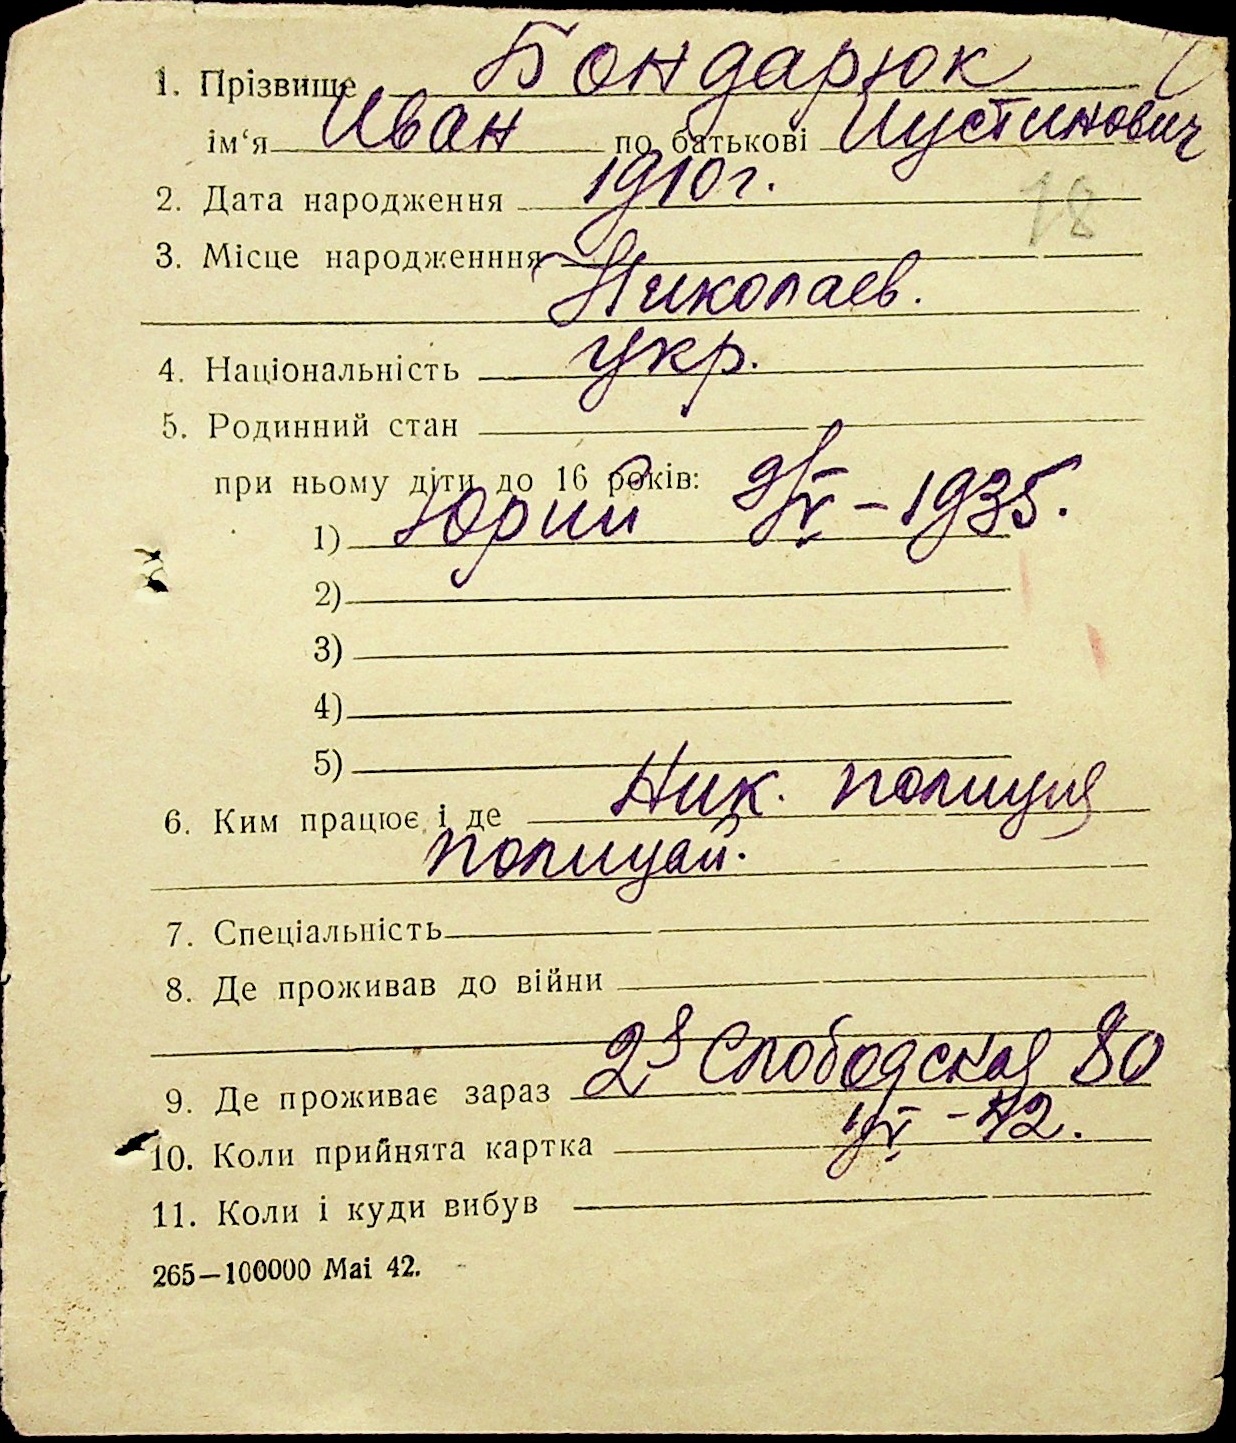 1. Прізвище Бондарюк
ім‘я Иван по батькові Иустинович
2. Дата народження 1910 г.
18
3. Місце народженння
Николаев.
4. Національність укр.
5. Родинний стан
при ньому діти до 16 років:
1) Юрий 9/V – 1935.
2)
3)
4)
5)
6. Ким працює і де Ник. полиция
полицай.
7. Спеціальність
8. Де проживав до війни
9. Де проживає зараз 2я Слободская 80
10. Коли прийнята картка – 42.
11. Коли і куди вибув
265—100000 Mai 42.